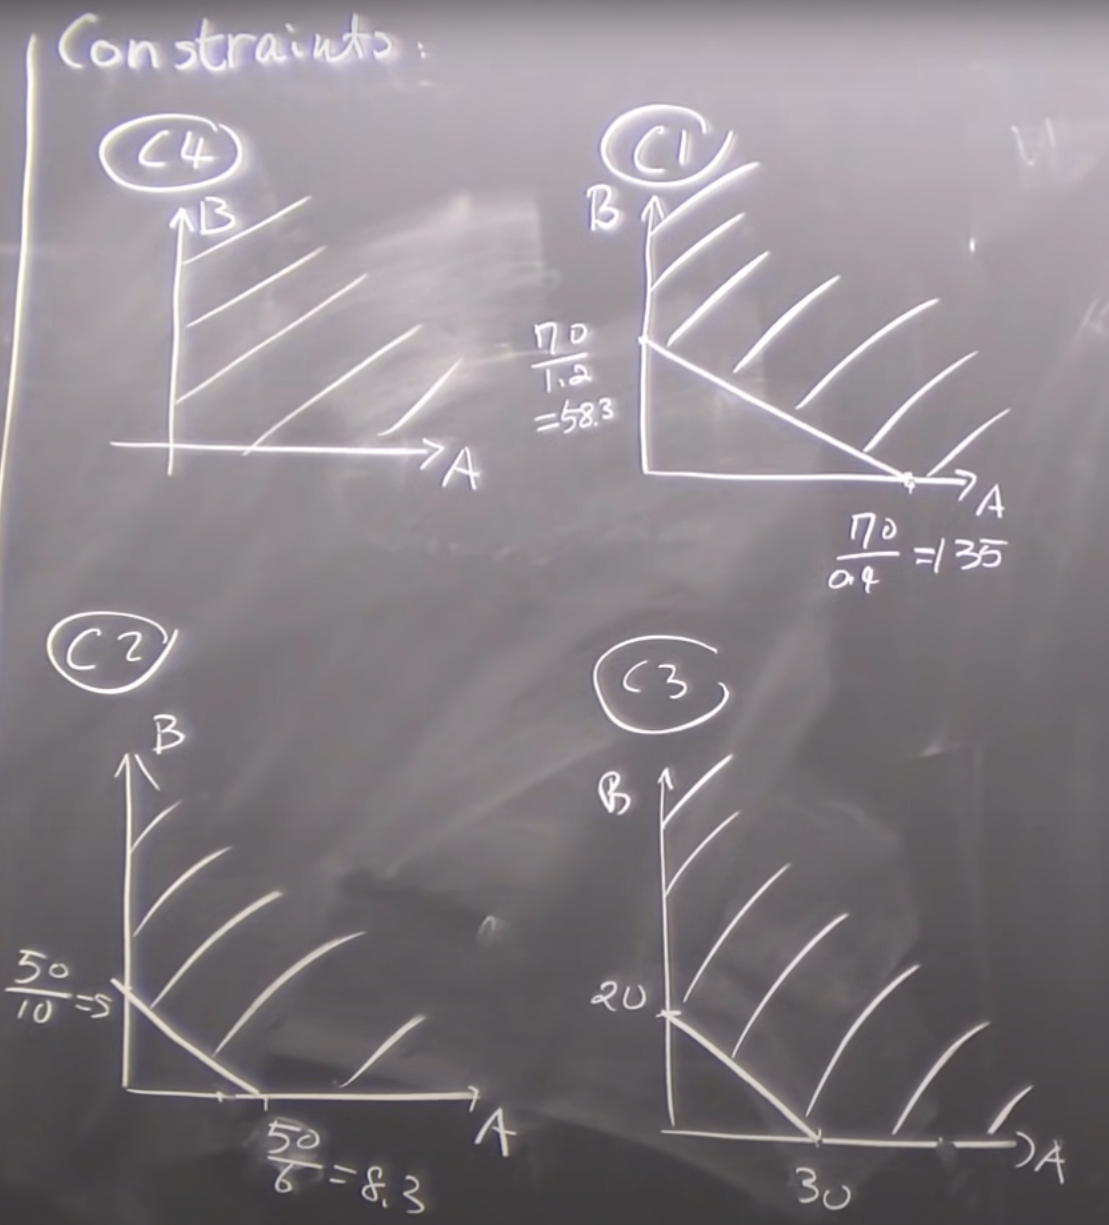 Constraints:
C4
B
A
C1
B
70
1.2
=58.3
A
70
0.4 =135
C2
B
50
10 =5
A
50
6 =8.3
C3
B
20
A
30